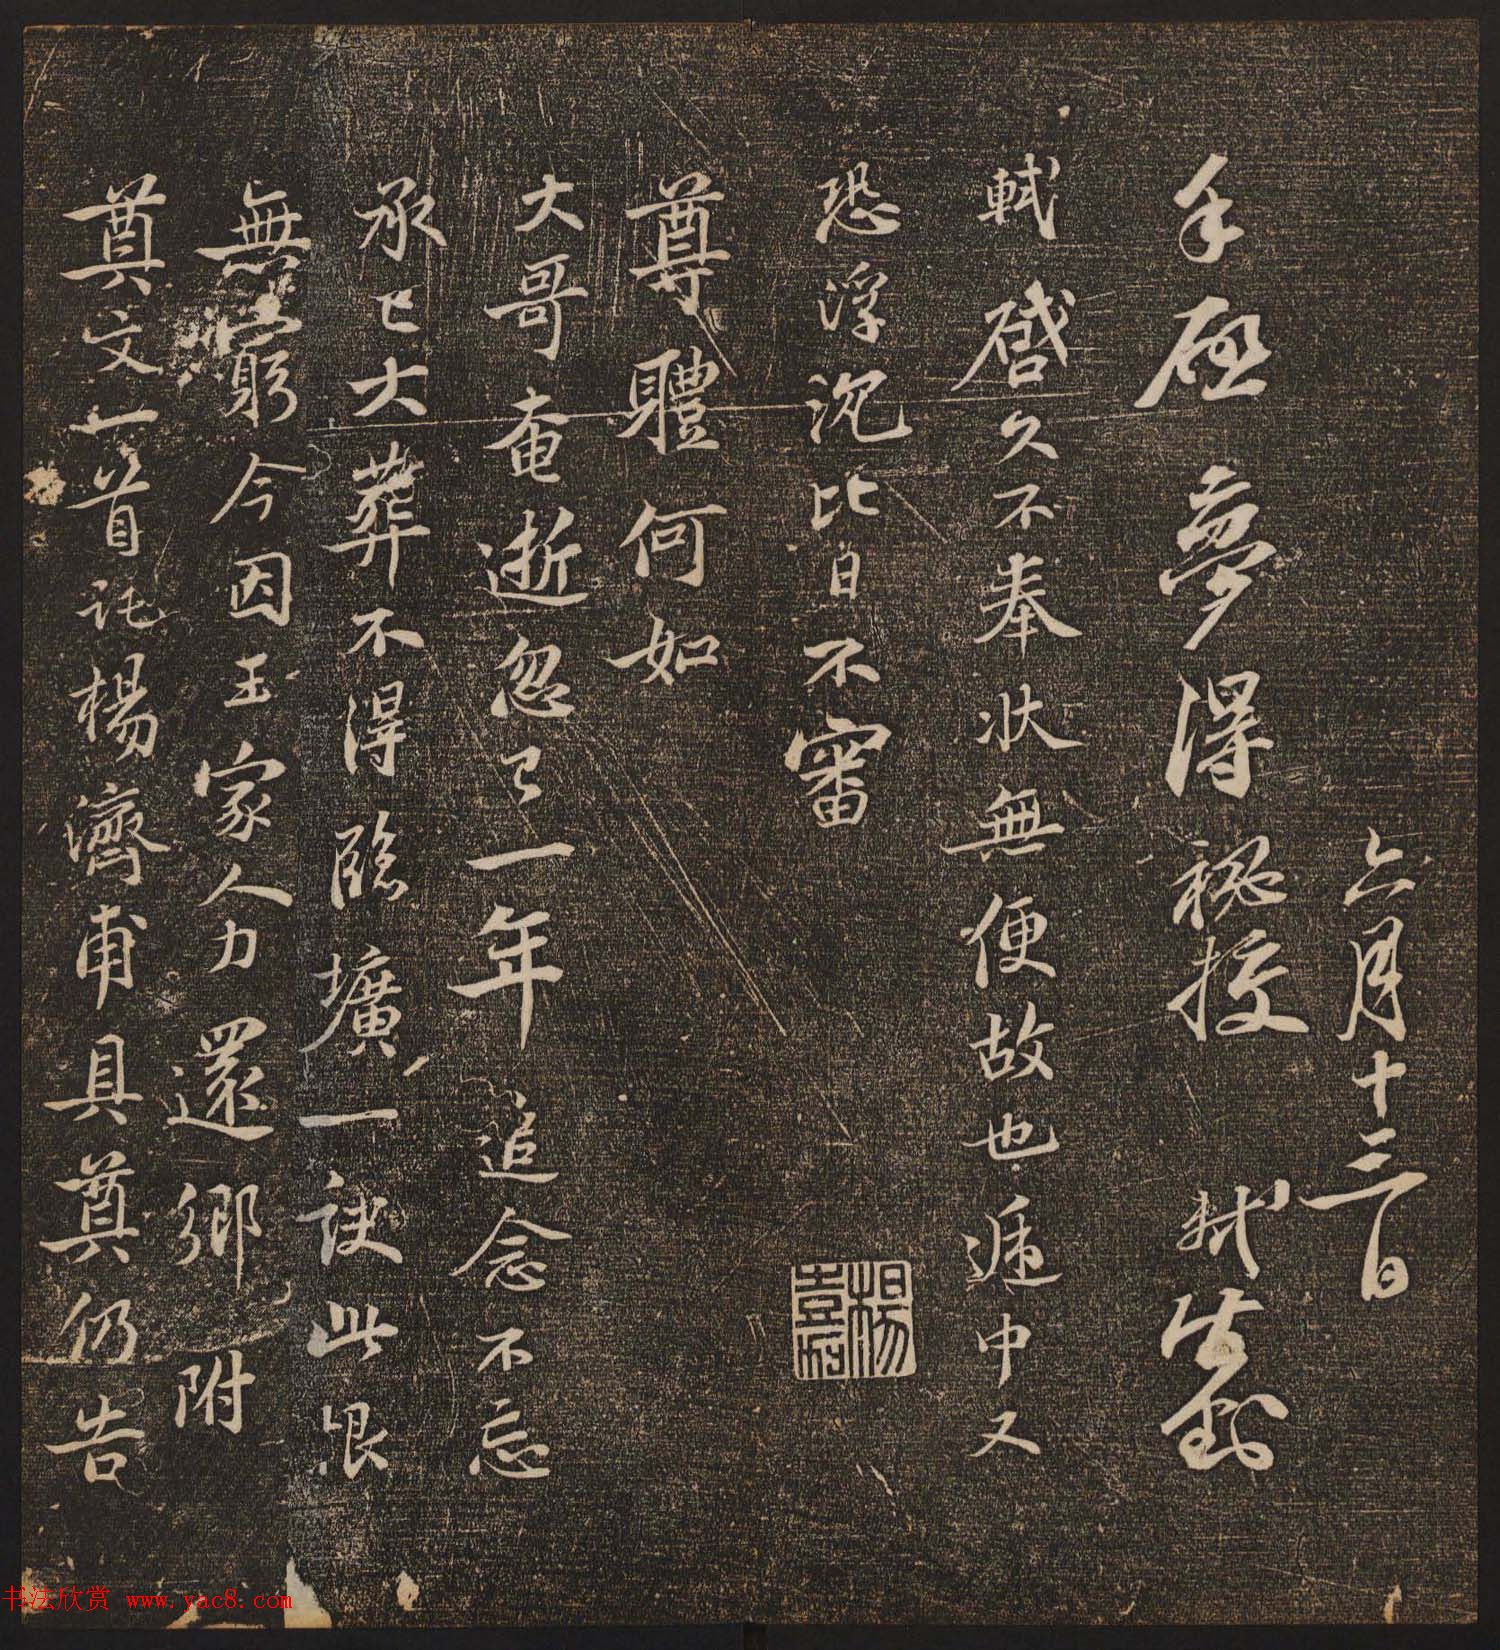 六月十三日
手啓夢得秘校 軾封
軾啓久不奉狀無便故也遞中又
恐浮沉比日不審
尊體何如
大哥奄逝忽已一年追念不忘
承已大葬不得臨壙一訣此恨
無窮今因王家人力還鄉附
奠文一首託楊濟甫具奠仍告
书法欣赏 www.yac8.com